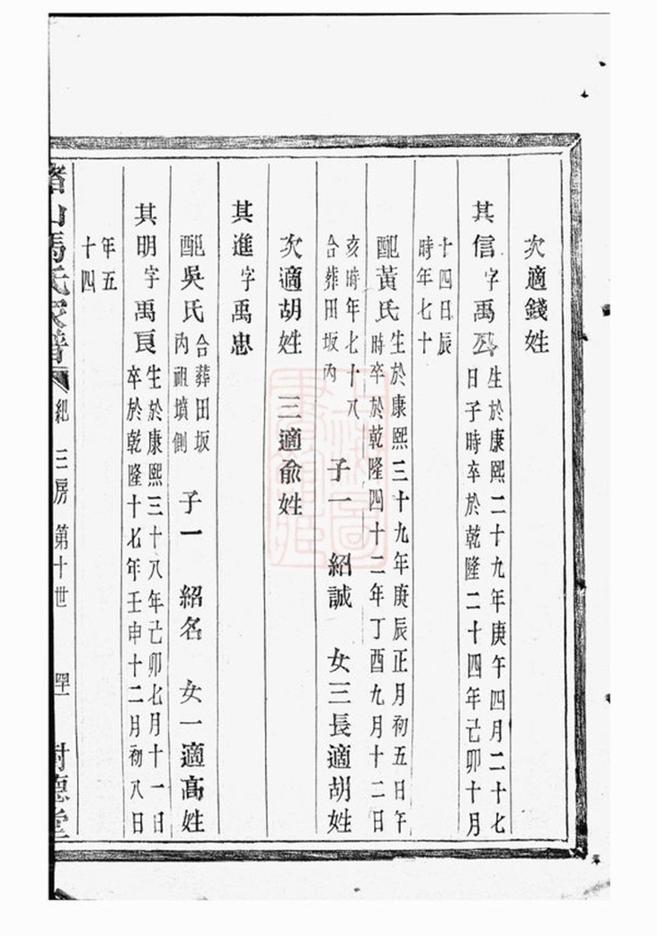 次適錢姓
其信字禹公生於康熙二十九年庚午四月二十七
日子時卒於乾隆二十四年己卯十月
十四日辰
時年七十
配黃氏生於康熙三十九年庚辰正月初五日午
時卒於乾隆四十二年丁酉九月十二日
亥時年七十八
合葬田坂內
子一 紹誠 女三長適胡姓
次適胡姓 三適俞姓
其進字禹忠
配吳氏合葬田坂
內祖墳側
子一 紹名 女一適高姓
其明字禹良生於康熙三十八年己卯七月十一日
卒於乾隆十七年壬申十二月初八日
年五
十四
山馬氏家譜 三房第十世 樹德堂